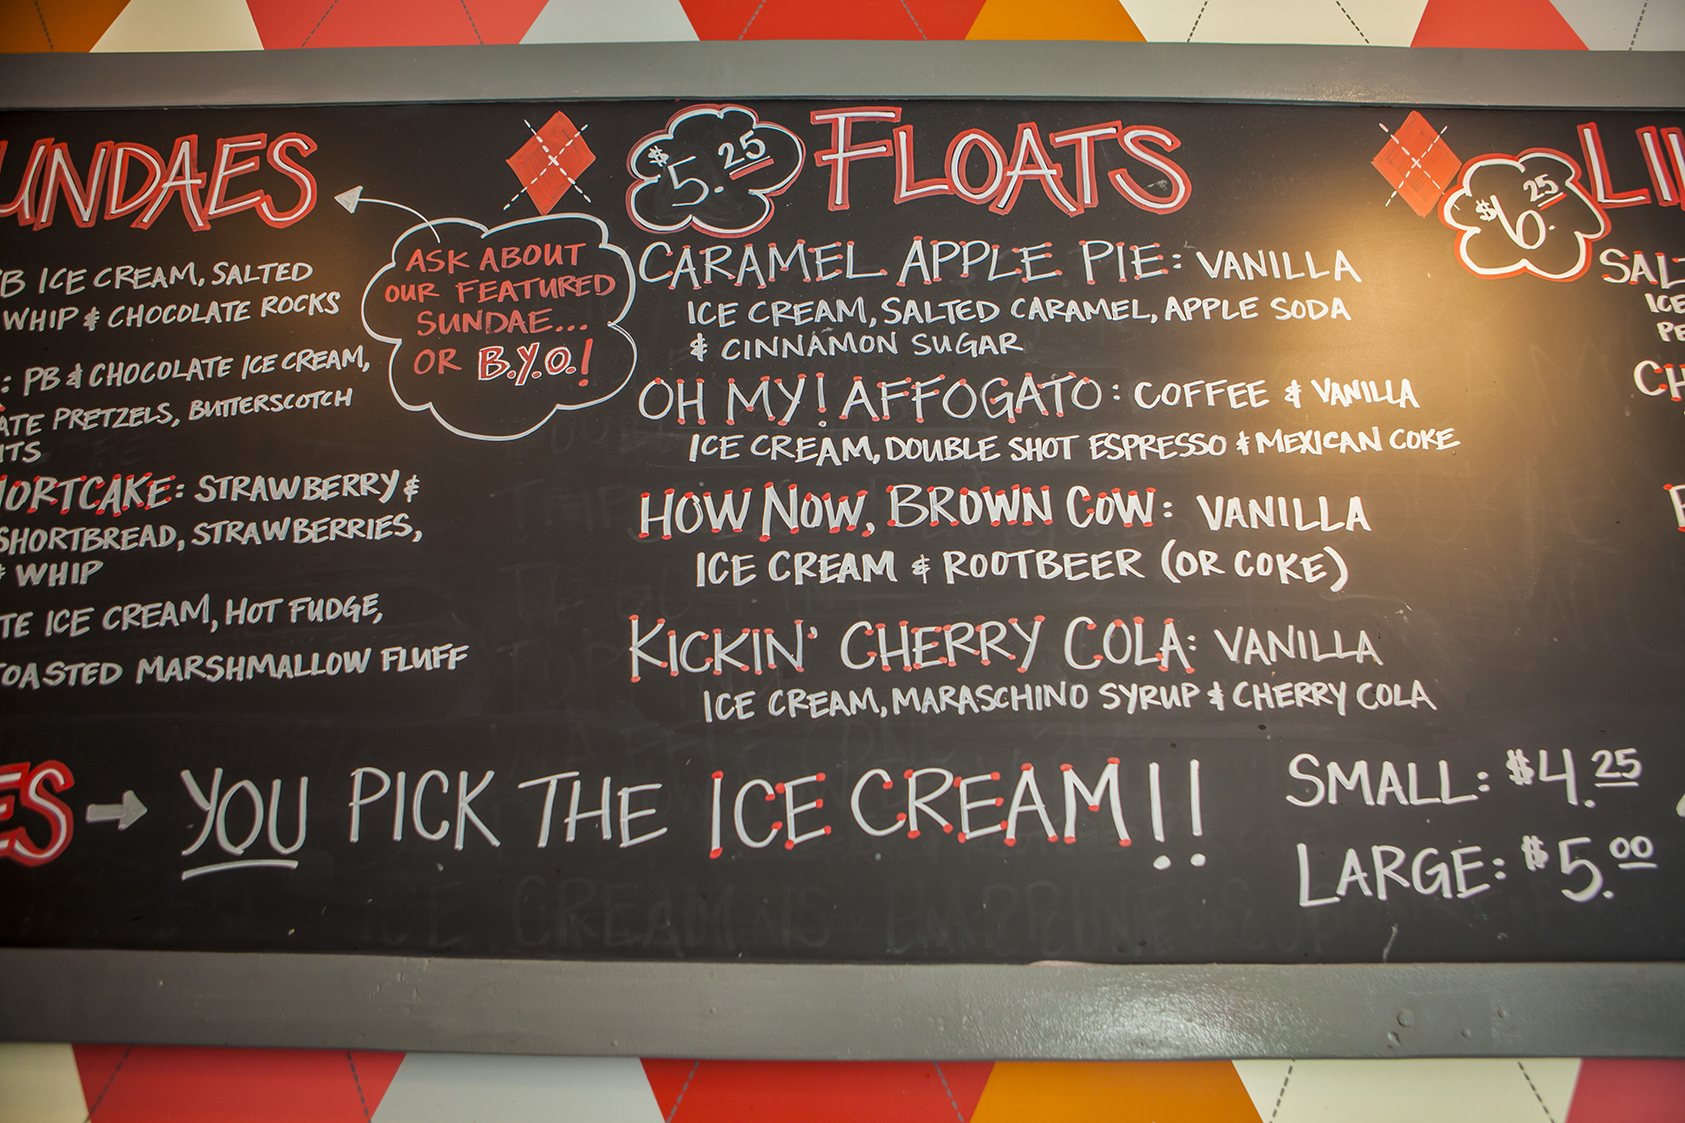 UNDAES
B ICE CREAM, SALTED
WHIP & CHOCOLATE ROCKS
: PB & CHOCOLATE ICE CREAM,
ATE PRETZELS, BUTTERSCOTCH
ITS
ORTCAKE: STRAWBERRY &
SHORTBREAD, STRAWBERRIES,
& WHIP
TE ICE CREAM, HOT FUDGE,
OASTED MARSHMALLOW FLUFF
ASK ABOUT
OUR FEATURED
SUNDAE...
OR B.Y.O.!
$5.25 FLOATS
CARAMEL APPLE PIE: VANILLA
ICE CREAM, SALTED CARAMEL, APPLE SODA
& CINNAMON SUGAR
OH MY! AFFOGATO: COFFEE & VANILLA
ICE CREAM, DOUBLE SHOT ESPRESSO & MEXICAN COKE
HOW NOW, BROWN COW: VANILLA
ICE CREAM & ROOTBEER (OR COKE)
KICKIN' CHERRY COLA: VANILLA
ICE CREAM, MARASCHINO SYRUP & CHERRY COLA
$6.25
SAL
ICE
PE
CH
ES → YOU PICK THE ICE CREAM!!
SMALL: $4.25
LARGE: $5.00